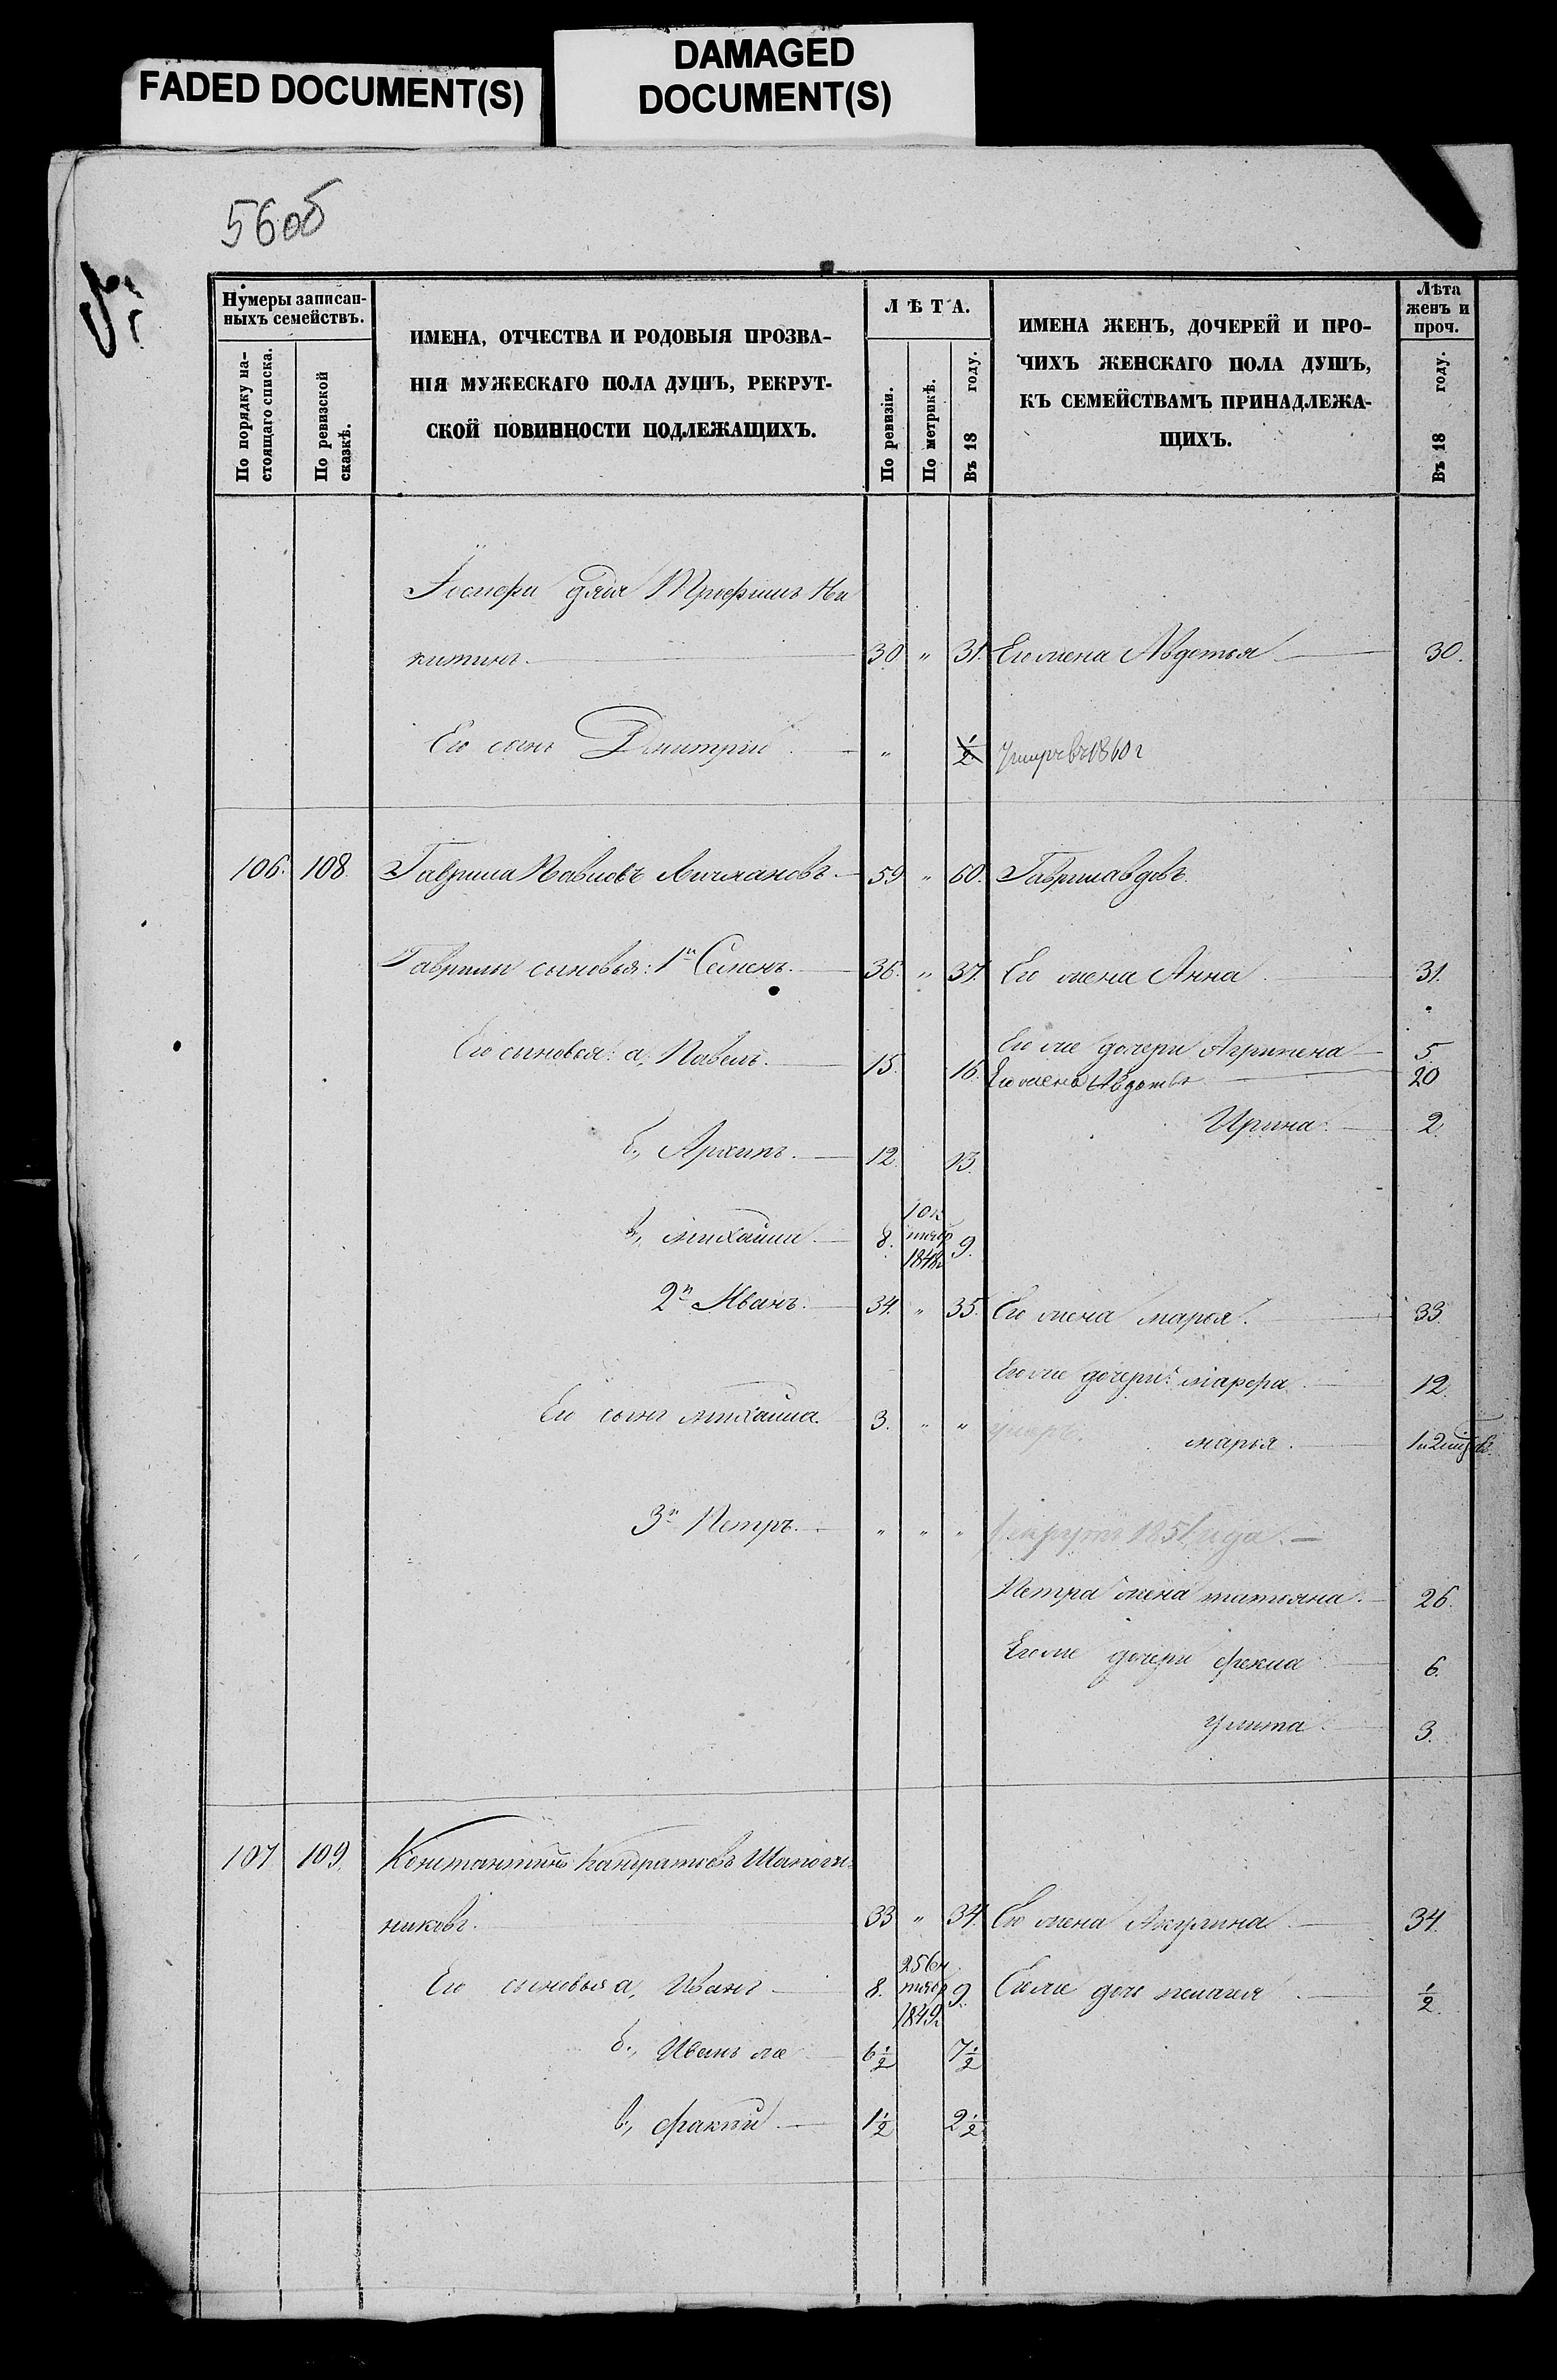 FADED DOCUMENT(S)
DAMAGED
DOCUMENT(S)
56об
Нумеры записан-
ныхъ семействъ.
По порядку на-
стоящаго списка.
По ревизской
сказкѣ.
ИМЕНА, ОТЧЕСТВА И РОДОВЫЯ ПРОЗВА-
НІЯ МУЖЕСКАГО ПОЛА ДУШЪ, РЕКРУТ-
СКОЙ ПОВИННОСТИ ПОДЛЕЖАЩИХЪ.
ЛѢТА.
По ревизіи.
По метрикѣ.
Въ 18 году.
ИМЕНА ЖЕНЪ, ДОЧЕРЕЙ И ПРО-
ЧИХЪ ЖЕНСКАГО ПОЛА ДУШЪ,
КЪ СЕМЕЙСТВАМЪ ПРИНАДЛЕЖА-
ЩИХЪ.
Лѣта
женъ и
проч.
Въ 18 году.
дядя Трофимъ Ни
китинъ. 30 " 31. Его жена Авдотья 30.
Его сынъ Дмитрій " 1/2 Умеръ въ 1860 г
106. 108. Гаврила Павловъ 59 " 60. Гаврила вдовъ.
Гаврилы сыновья: 1й Семенъ. 36. " 37. Его жена Анна 31.
Его сыновья: а, Павелъ. 15. 16. Его же дочери Агрипена 5.
Его жена Авдотья 20
Ирина. 2.
б., Архипъ. 12. 13.
в., Михайла 8. 1848г 9.
2й Иванъ. 34. " 35. Его жена Марья. 33.
Его же дочери: Марфа 12.
Его сынъ Михайла. 3. " " умеръ.
Марья.
3й Петръ. " " " 1851 года.
Петра жена Татьяна. 26.
Его же дочери Фекла 6.
Улита. 3.
107 109. Константинъ Кандратьевъ Шапош-
никовъ. 33 " 34. Его жена Акулина 34.
Его сыновья а, Иванъ 8. 25 Ок
тябр
1849г 9. Его же дочь Пелагея 1/2.
б., Иванъ же 6 1/2 7 1/2
в., 1 1/2 2 1/2